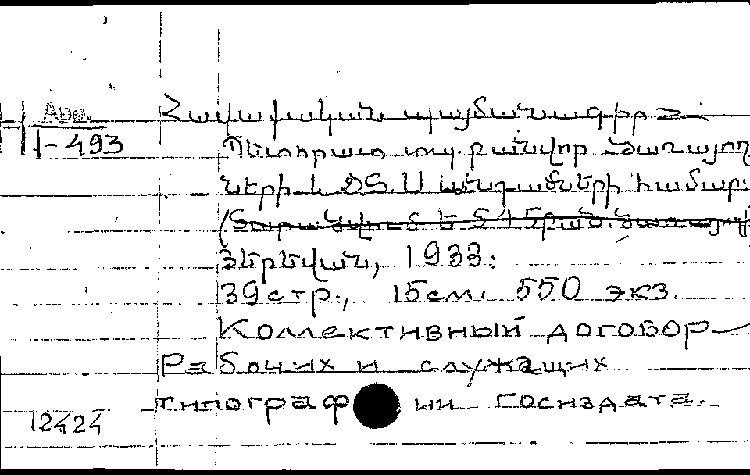 Арм.
I-493
Հավաքական պայմանագիր
Պետհրատ տպ. բանվոր-ծառայող
ների և ՏՏՄ անդամների համար:
Յերեվան, 1933:
39 стр., 15 см. 550 экз.
Коллективный договор
рабочих и служащих
типограф ии Госиздата.
12424